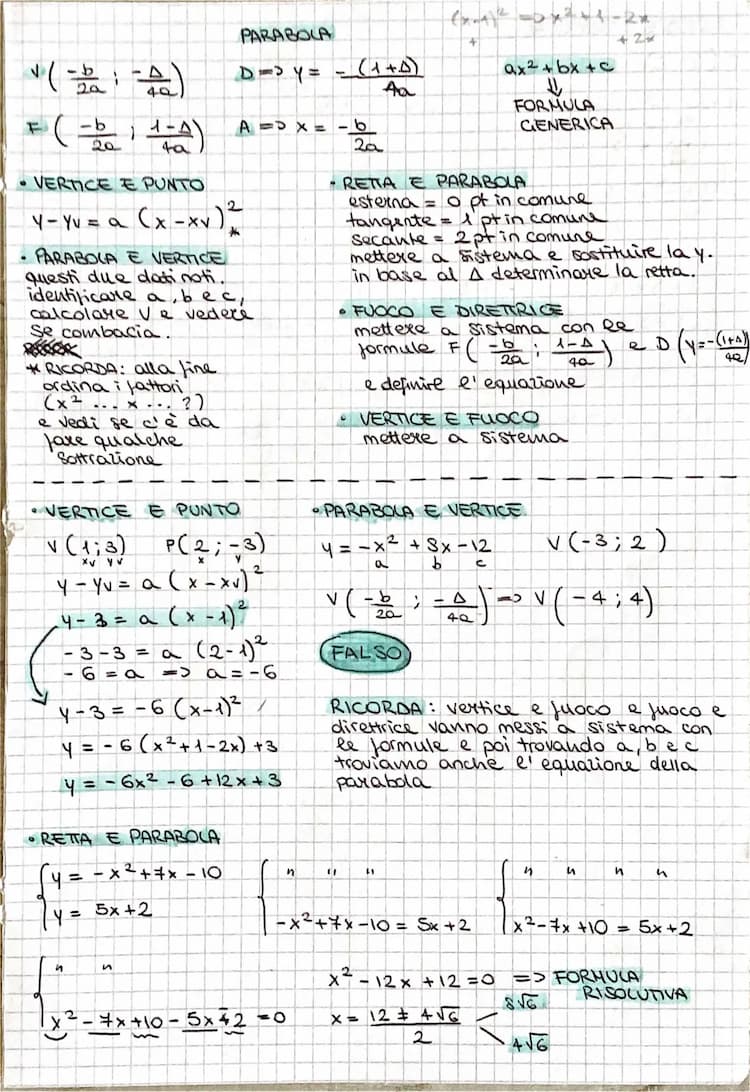 (x-1)² => x² + 1 - 2x
+ + 2x
PARABOLA
V (-b/2a ; -Δ/4a) D => y = -(1+Δ)/4a ax² + bx + c
⇓
FORMULA
GENERICA
F (-b/2a ; 1-Δ/4a) A => x = -b/2a
• VERTICE E PUNTO
y - yv = a (x - xv)² *
• PARABOLA E VERTICE
questi due dati noti.
identificare a, b e c,
calcolare V e vedere
se combacia.
* RICORDA: alla fine
ordina i fattori
(x² ... x ... ?)
e vedi se c'è da
fare qualche
sottrazione
• RETTA E PARABOLA
esterna = 0 pt in comune
tangente = 1 pt in comune
secante = 2 pt in comune
mettere a sistema e sostituire la y.
in base al Δ determinare la retta.
• FUOCO E DIRETTRICE
mettere a sistema con le
formule F (-b/2a ; 1-Δ/4a) e D (y = -(1+Δ)/4a)
e definire l'equazione
• VERTICE E FUOCO
mettere a sistema
• VERTICE E PUNTO
V (1 ; 3) P(2 ; -3)
xv yv x y
y - yv = a (x - xv)²
y - 3 = a (x - 1)²
-3 - 3 = a (2 - 1)²
-6 = a => a = -6
y - 3 = -6 (x - 1)²
y = -6 (x² + 1 - 2x) + 3
y = -6x² - 6 + 12x + 3
• PARABOLA E VERTICE
y = -x² + 8x - 12 V (-3 ; 2)
a b c
V (-b/2a ; -Δ/4a) => V (-4 ; 4)
FALSO
RICORDA: vertice e fuoco e fuoco e
direttrice vanno messi a sistema con
le formule e poi trovando a, b e c
troviamo anche l'equazione della
parabola
• RETTA E PARABOLA
{ y = -x² + 7x - 10 { " " " { " " " "
y = 5x + 2 -x² + 7x - 10 = 5x + 2 x² - 7x + 10 = 5x + 2
{ " " x² - 12x + 12 = 0 => FORMULA
RISOLUTIVA
x² - 7x + 10 - 5x + 2 = 0 x = 12 ± 4√6 / 2
8√6
4√6